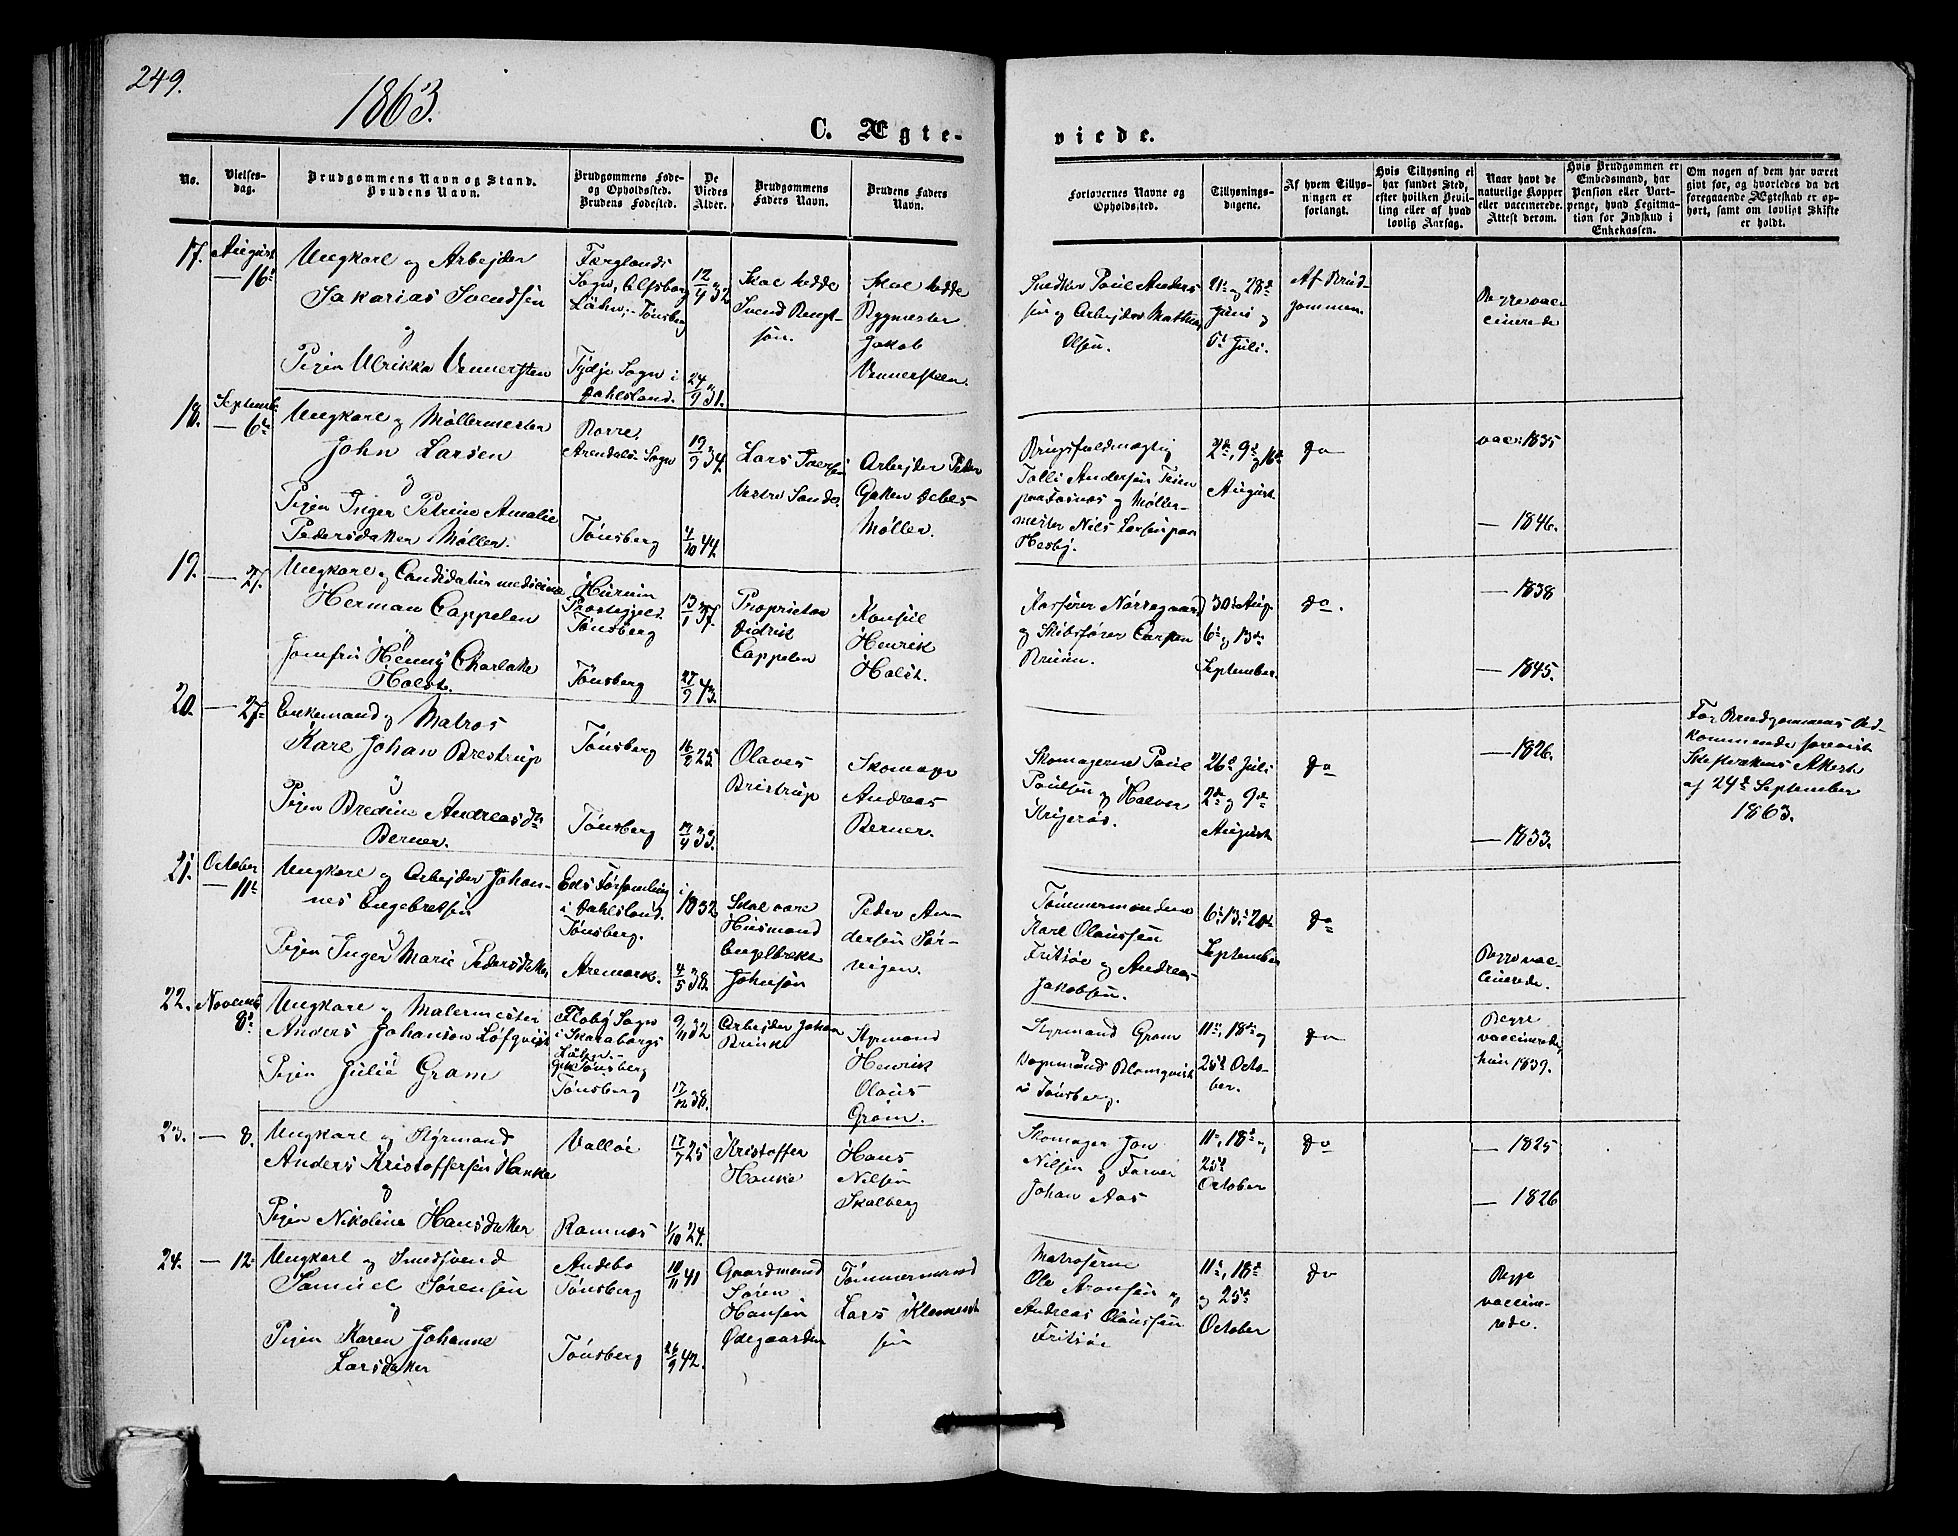 249.
1863.
C. Ægte-
viede.
No.
Vielses-
dag.
Brudgommens Navn og Stand.
Brudens Navn.
Brudgommens Føde-
og Opholdssted.
Brudens Fødested.
De
Viedes
Alder.
Brudgommens
Faders Navn.
Brudens Faders
Navn.
Forlovernes Navne og
Opholdssted.
Tillysnings-
dagene.
Af hvem Tillys-
ningen er
forlangt.
Hvis Tillysning ei
har fundet Sted,
efter hvilken Bevil-
ling eller af hvad
lovlig Aarsag.
Naar havt de
naturlige Kopper
eller vaccinerede.
Attest derom.
Hvis Brudgommen er
Embedsmand, har
Pension eller Vart-
penge, hvad Legitma-
tion for Indskud i
Enkekassen.
Om nogen af dem har været
givt før, og hvorledes da det
foregaaende Ægteskab er op-
hørt, samt om lovligt Skifte
er holdt.
17.
August
— 16de
Ungkarl og Arbejder
Sakarias Svendsen
og
Pigen Ulrikka Vennersten
Færglanda
Sogn, Elfsborg
Lähn, - Tønsberg
Tydje Sogn i
Dahlsland.
12/4 32
24/9 31.
Skal hedde
Svend Bengt-
søn.
Skal hedde
Bygmester
Jakob
Vennersteen.
Snedker Paul Anders
søn og Arbejder Mathias
Olsen.
21de og 28de
Juni og
5te Juli.
Af Brud-
gommen.
Begge vac-
cinerede
18.
Septemb.
— 6te
Ungkarl og Møllermester
John Larsen
og
Pigen Inger Petrine Amalie
Pedersdatter Møller.
Borre.
Arendals Sogn
Tønsberg
19/9 34.
4/10 44.
Lars Iversen
Vestre Sande.
Arbejder Peder
Møller.
Brugsfuldmægtig
Tolli Andersen Teien
paa Føsnes og Møller-
mester Nils Larsen paa
Hesby.
2den, 9de og 16de
August
do
vac: 1835
— 1846.
19.
— 27.
Ungkarl og Candidatus medicinæ
Herman Cappelen
og
Jomfru Henny Charlotte
Holst.
Hurum
Prestegjeld.
Tønsberg
Tønsberg
13/1 37.
27/9 43.
Proprietær
Didrik
Cappelen
Konsul
Henrik
Holst.
Kasserer Nørregaard
og Skibsfører Carsten
Bruun.
30te Aug.
6te og 13de
September.
do.
— 1838
— 1845.
20.
— 27de
Enkemand og Matros
Karl Johan Brestrup
og
Pigen Bredine Andreasda
Berner.
Tønsberg
Tønsberg
16/2 25.
14/4 33.
Olaves
Bristrup
Skomager
Andreas
Berner.
Skomagerne Paul
Poulsen og Halvor
Krigerøs.
26de Juli
2den og 9de
August
do
— 1826.
— 1833.
For Brudgommens Ved-
kommende forevist
Skifterettens Attest
af 24de September
1863.
21.
October
— 11te
Ungkarl og Arbejder Johan-
nes Engebretsen
og
Pigen Inger Marie Pedersdatter
Eds Forsamling
i Dahlsland.
Tønsberg.
Aremark.
i 1832.
4/5 38.
Skal være
Husmand
Engelbrekt
Johnsøn
Peder An-
dersen Sør-
vigen.
Tømmermændene
Karl Olaussen
Fritsøe og Andreas
Jakobsen.
6te, 13de, 20de
September
do
Begge vac-
cinerede.
22.
Novemb.
8de
Ungkarl og Malermester
Anders Johanson Løfqvist
og
Pigen Julie Gram
Floby Sogn
i Skaraborgs
Lähn.-
Tønsberg
Tønsberg
9/11 32
17/12 38.
Arbejder Johan
Brink
Styrmand
Henrik
Olaus
Gram.
Styrmand Gram
og
Vognmand Blomqvist
i Tønsberg.
11te, 18de og
25de Octo-
ber.
do
Begge
vaccinerede,
hun 1839.
23.
— 8.
Ungkarl og Styrmand
Anders Kristoffersen Hanke
og
Pigen Nikoline Hansdatter
Valløe
Ramnæs
17/7 25
1/10 24.
Kristoffer
Hanke
Hans
Nilsen
Skalberg
Skomager Jon
Nilsen og Farver
Johan Aas
11te, 18de og
25de
October
do
— 1825
— 1826
24.
— 12te
Ungkarl og Smedsvend
Samuel Sørensen
og
Pigen Karen Johanne
Larsdatter
Andebo
Tønsberg
Tønsberg
10/11 41
26/9 42.
Gaardmand
Søren
Hansen
Ødegaarden
Tømmermand
Lars Klement
sen
Matroserne
Ole Aronsen og
Andreas Olaussen
Fritsøe
11te, 18de
og 25de
October
do
Begge
vaccine-
rede.